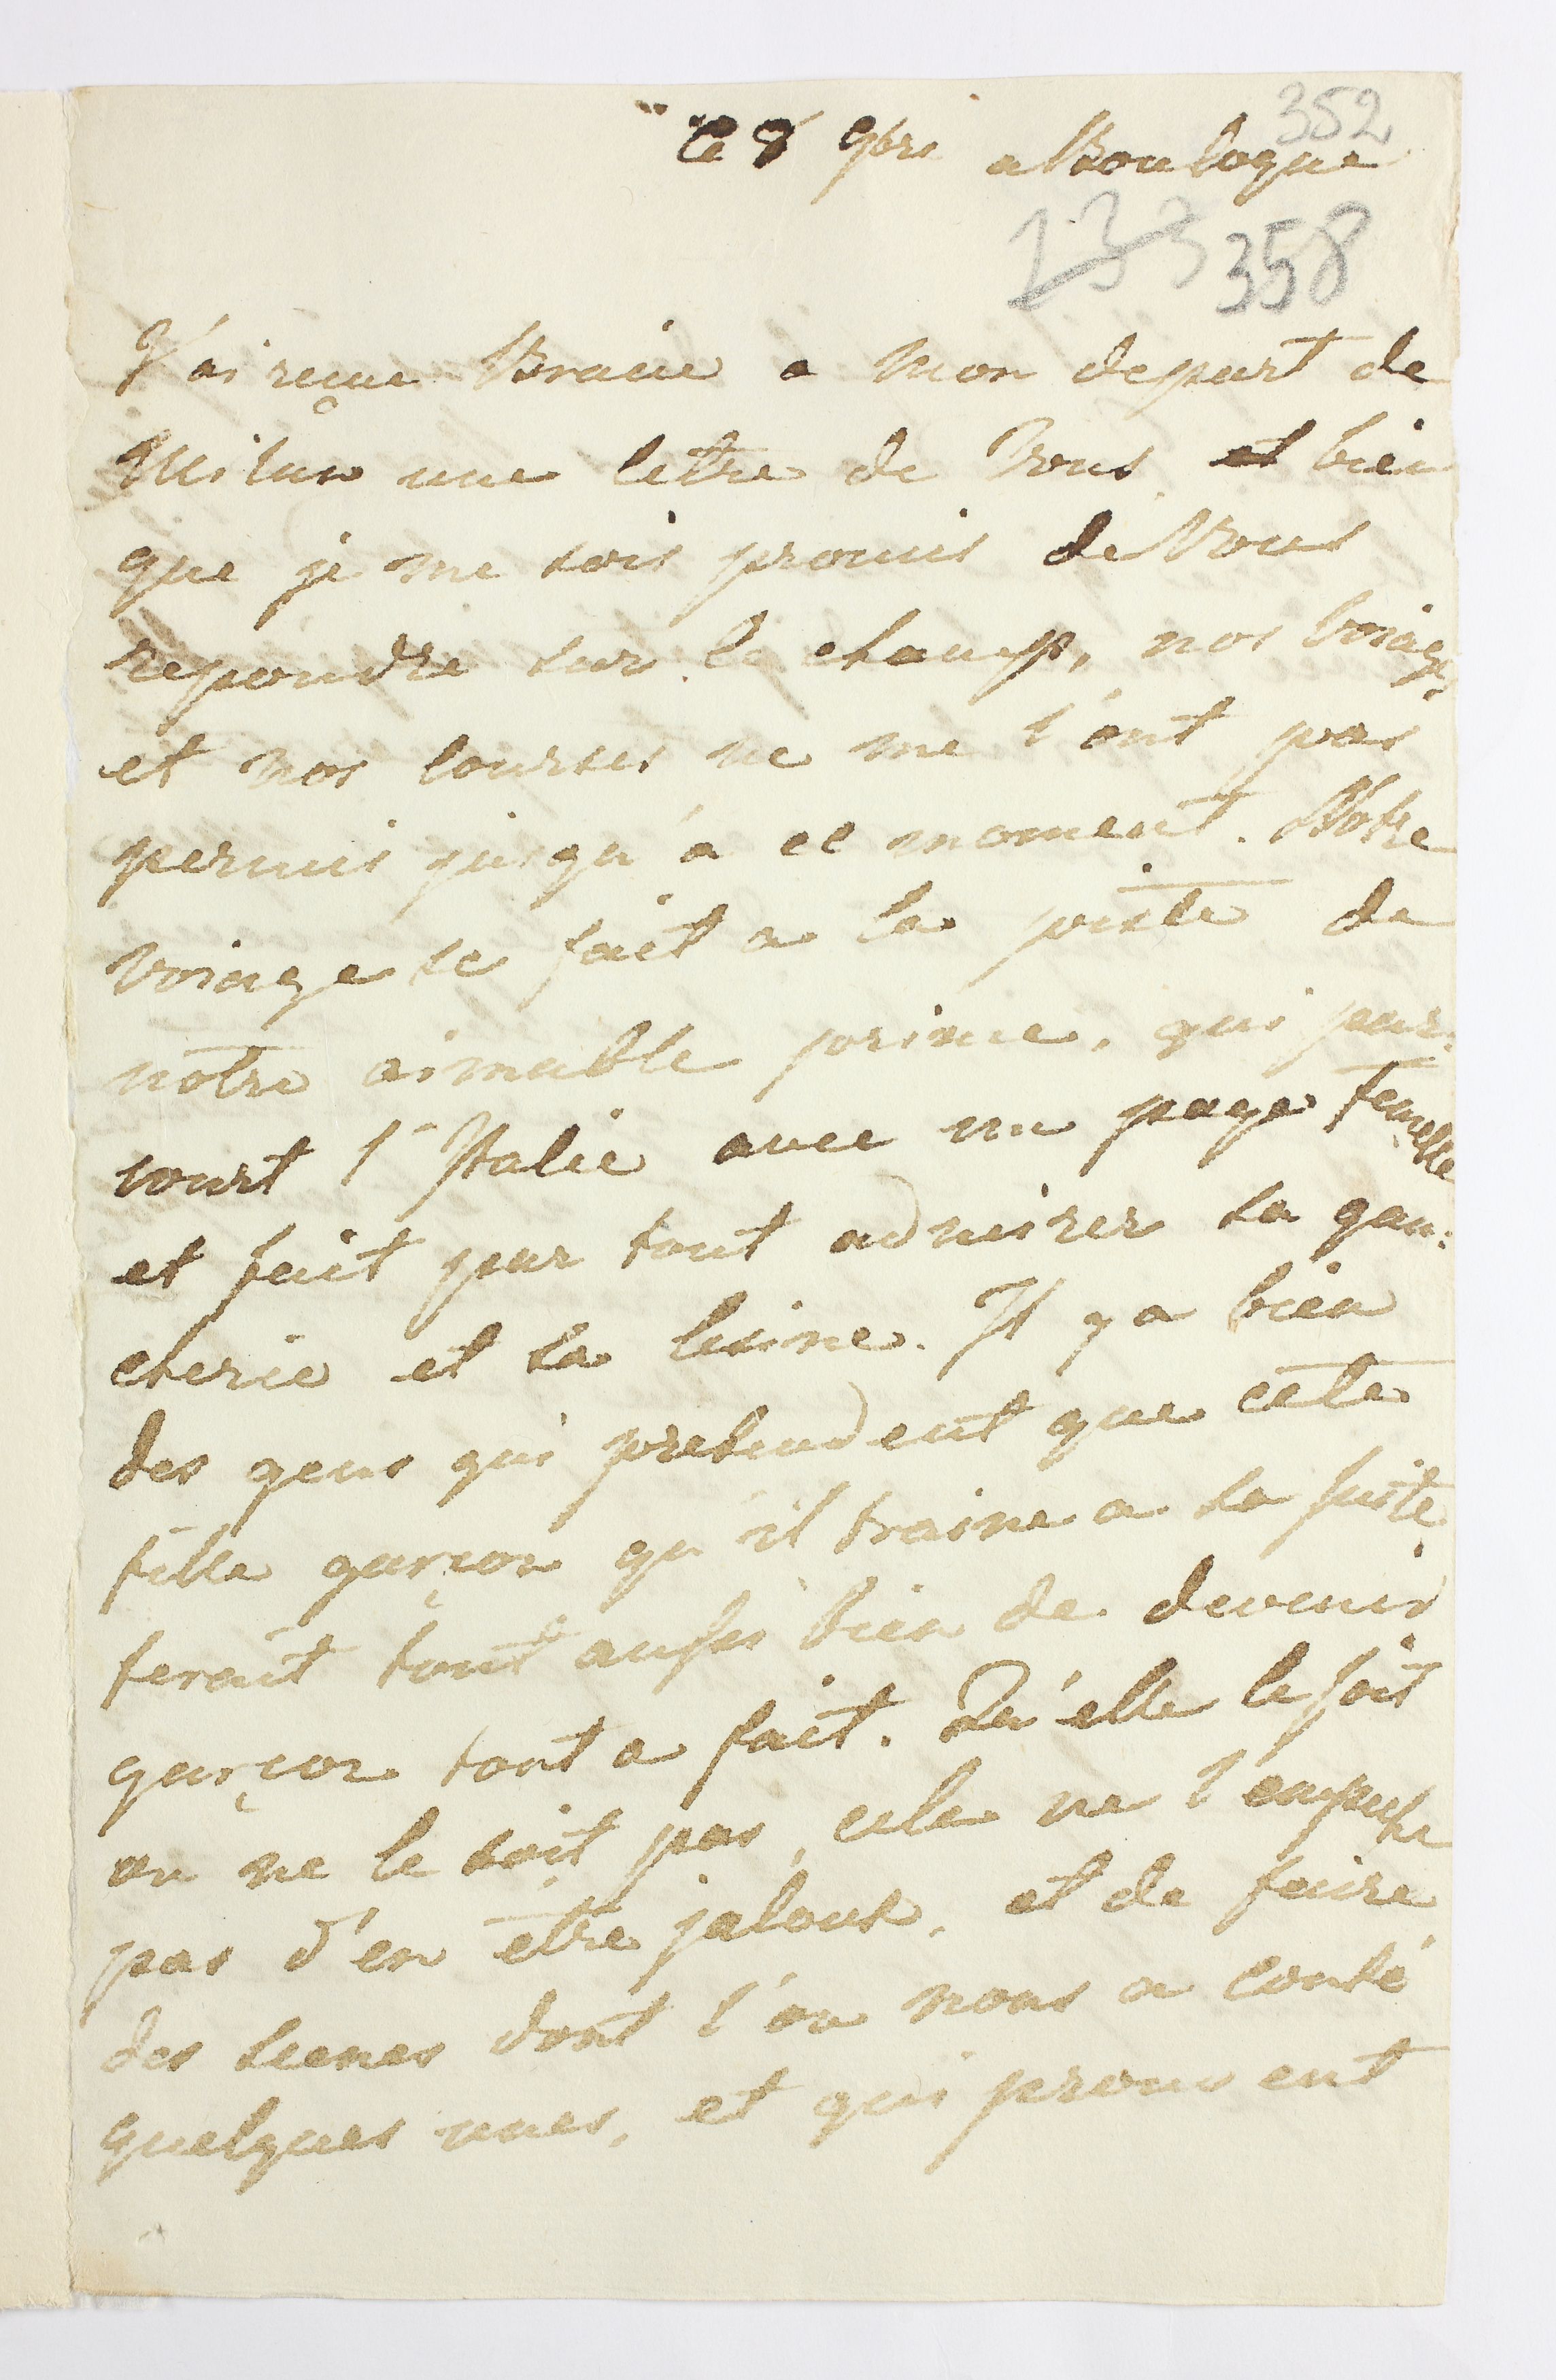 352
Ce 8 9bre a Boulogne
133 358
J'ai reçue Braue a mon depart de
Milan une letre de Vous et bien
que je me sois promis de Vous
repondre sur le champ, nos voiages
et nos courses ne me l'ont pas
permis jusqu'à ce moment. Nôtre
voiage se fait a la piste de
nôtre aimable prince, qui par:
court l'Italie avec un page femelle
et fait par tout admirer sa gau:
cherie et sa lesine. Il y a bien
des gens qui pretendent que cete
fille garçon qu'il traine a sa suite
feroit tout aussi bien de devenir
garçon tout a fait. Qu'elle le soit
ou ne le soit pas, cela ne l'empeche
pas d'en etre jaloux, et de faire
des scenes dont l'on nous a conté
quelques unes, et qui prouvent